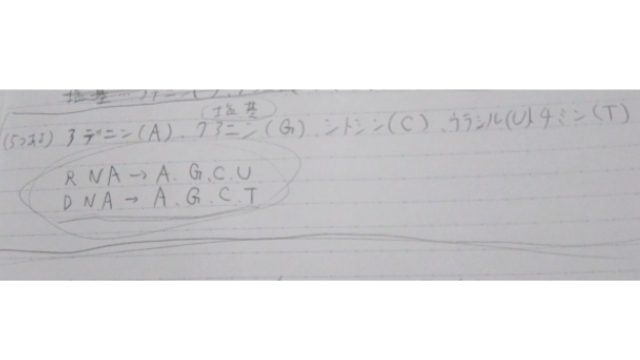 塩基
(塩基)
(5つある) アデニン(A)、グアニン(G)、シトシン(C)、ウラシル(U)、チミン(T)
RNA→A.G.C.U
DNA→A.G.C.T